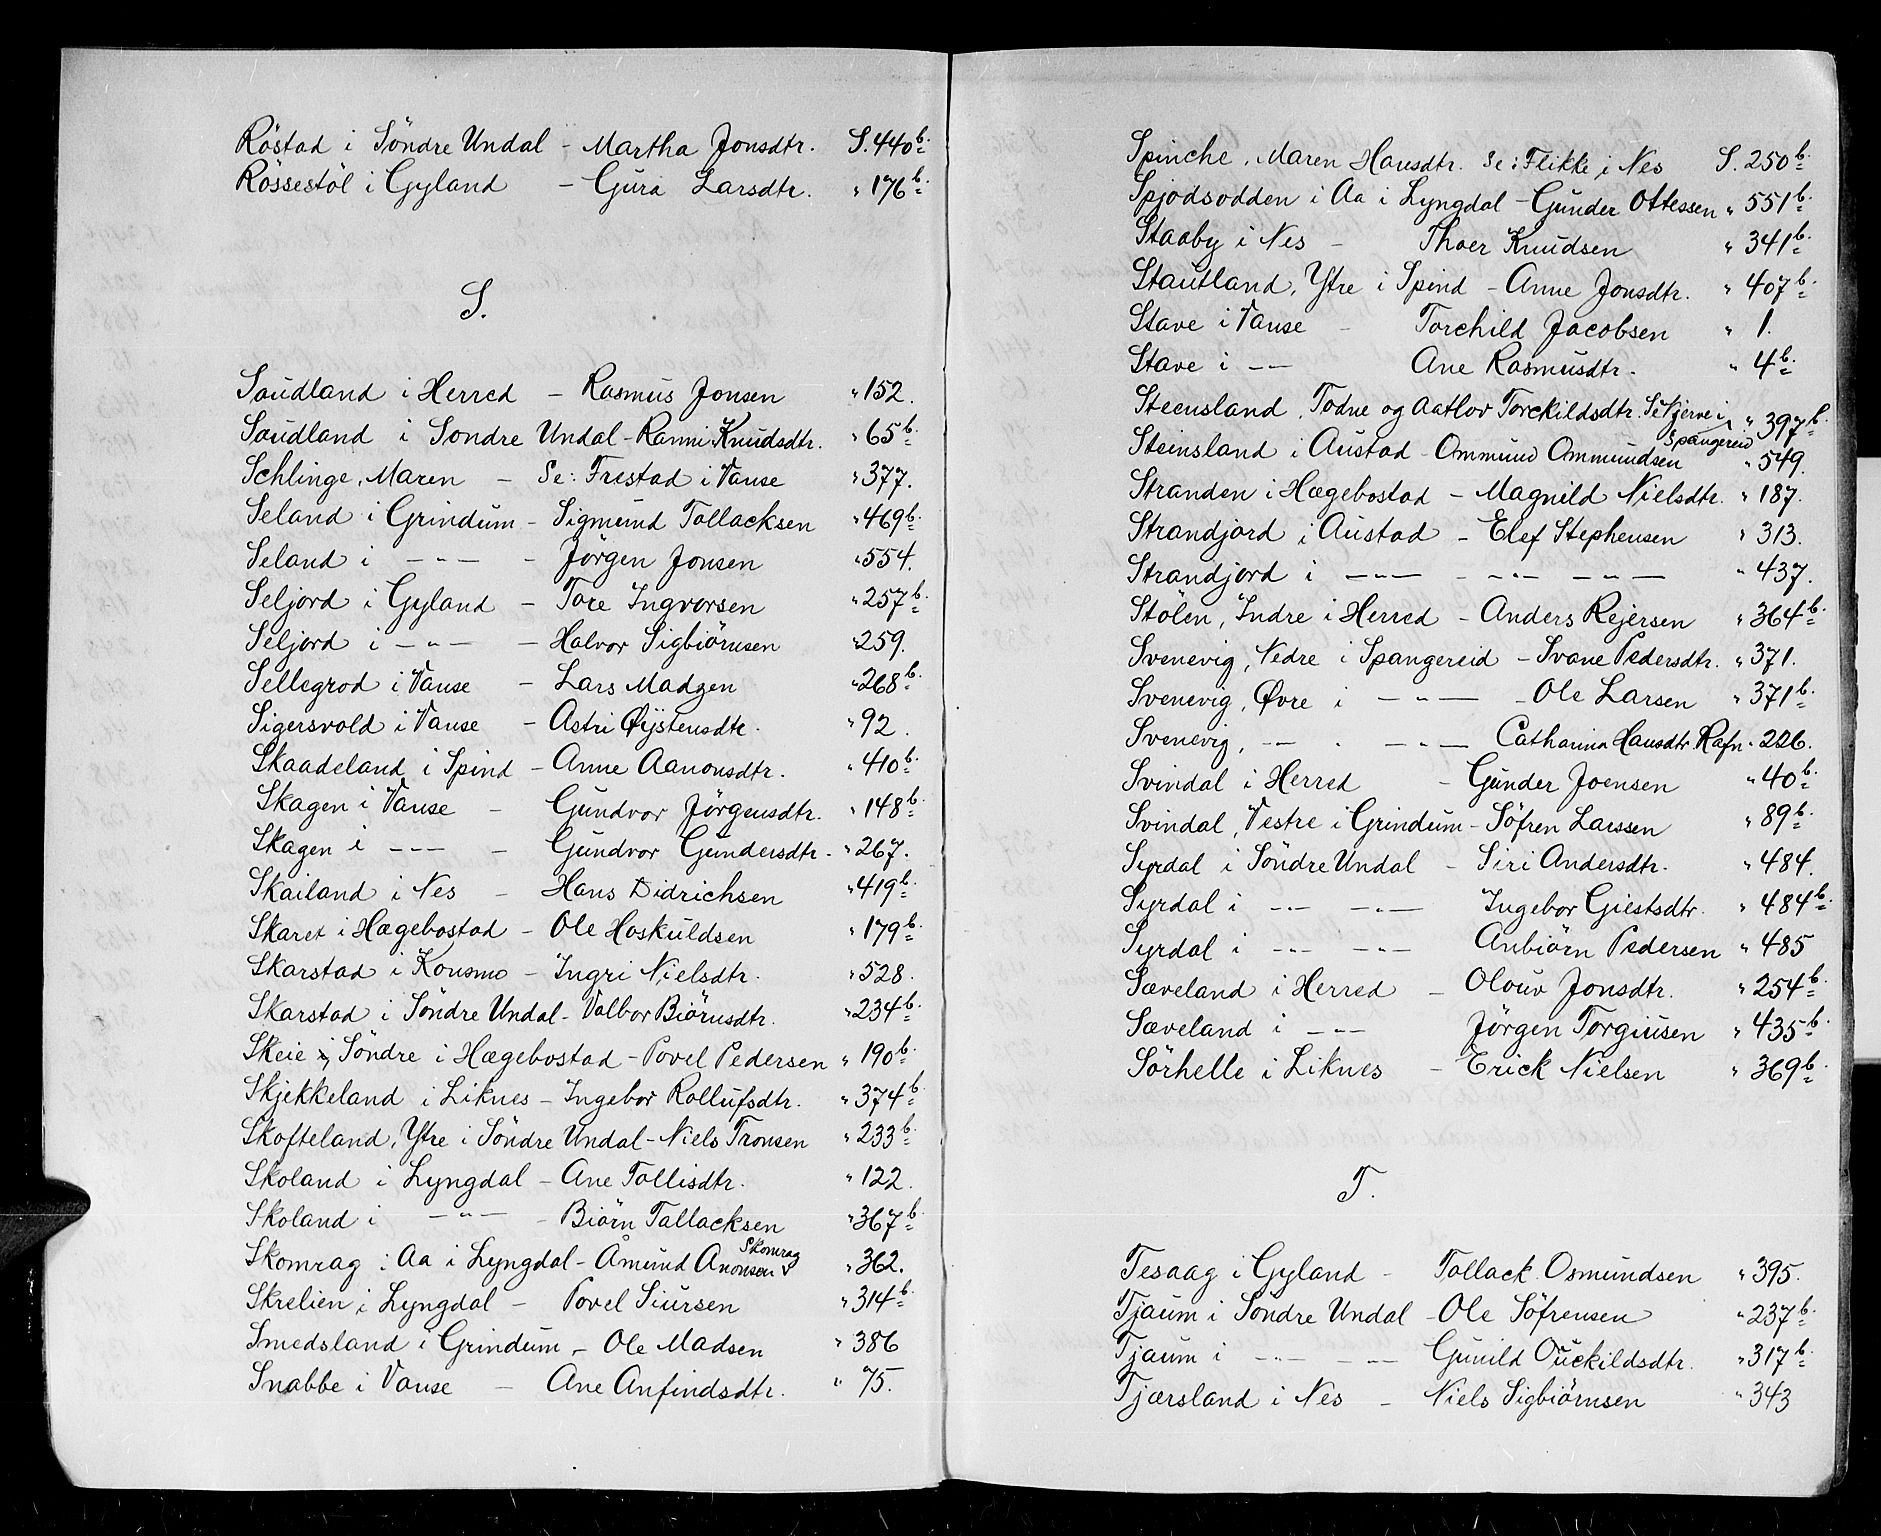 Röstad i Söndre Undal - Martha Jonsdtr. S. 440b.
Rössestöl i Gyland - Gura Larsdtr. " 176b.
S.
Saudland i Herred - Rasmus Jonsen " 152.
Saudland i Sondre Undal - Ranni Knudsdtr. " 65b.
Schlinge, Maren - Se: Frestad i Vanse " 377.
Seland i Grindum - Sigmund Tollacksen " 469b.
Seland i - " - - Jörgen Jonsen " 554.
Seljord i Gyland - Tore Ingvorsen " 257b.
Seljord i - " - - Halvor Sigbiörnsen " 259.
Sellegrod i Vanse - Lars Madzen " 268b.
Sigersvold i Vanse - Astri Øystensdtr. " 92.
Skaadeland i Spind - Anne Aanonsdtr. " 410b.
Skagen i Vanse - Gundvor Jörgensdtr. " 148b.
Skagen i - " - - Gundvor Gundersdtr. " 267.
Skailand i Nes - Hans Didrichsen " 419b.
Skaret i Hægebostad - Ole Hoskuldsen " 179b.
Skarstad i Konsmo - Ingri Nielsdtr. " 528.
Skarstad i Söndre Undal - Valbor Biörnsdtr. " 234b.
Skeie i Söndre i Hægebostad - Povel Pedersen " 190b.
Skjekkeland i Liknes - Ingebor Rollufsdtr. " 374b.
Skofteland, Ytre i Söndre Undal - Niels Tronsen " 233b.
Skoland i Lyngdal - Ane Tollisdtr. " 122.
Skoland i - " - - Biörn Tallacksen " 367b.
Skomrag i Aa i Lyngdal - Åmund Anonsen Skomrag " 362.
Skrelien i Lyngdal - Povel Siursen " 314b.
Smedsland i Grindum - Ole Madsen " 386
Snabbe i Vanse - Ane Anfindsdtr. " 75.
Spinche, Maren Hansdtr. Se: Flikke i Nes S. 250b.
Spjodsodden i Aa i Lyngdal - Gunder Ottessen " 551b.
Staaby i Nes - Thoer Knudsen " 341b.
Stautland, Ytre i Spind - Anne Jonsdtr. " 407b.
Stave i Vanse - Torchild Jacobsen " 1.
Stave i - " - Ane Rasmusdtr. " 4b.
Steensland, Todne og Aatlov Torckildsdtr. Se Njerve i Spangereid " 397b.
Steinsland i Austad - Ommund Ommundsen " 549.
Stranden i Hægebostad - Magnild Nielsdtr. " 187.
Strandjord i Austad - Elef Stephensen " 313.
Strandjord i - " - - " - - " - " 437.
Stölen, Indre i Herred - Anders Rejersen " 364b.
Svenevig, Nedre i Spangereid - Svane Pedersdtr. " 371.
Svenevig, Øvre i - " - - Ole Larsen " 371b.
Svenevig, - " - - " - Catharina Hansdtr. Rafn " 226.
Svindal i Herred - Gunder Joensen " 40b.
Svindal, Vestre i Grindum - Söfren Larssen " 89b.
Syrdal i Söndre Undal - Siri Andersdtr. " 484.
Syrdal i - " - - " - Ingebor Giestsdtr. " 484b.
Syrdal i - " - - " - Anbiörn Pedersen " 485
Sæveland i Herred - Olouv Jonsdtr. " 254b.
Sæveland i - " - Jörgen Torgiusen " 435b.
Sörhelle i Liknes - Erick Nielsen " 369b.
T.
Tesaag i Gyland - Tollack Osmundsen " 395.
Tjaum i Söndre Undal - Ole Söfrensen " 237b.
Tjaum i - " - - " - Gunild Ouckildsdtr. " 317b.
Tjærsland i Nes - Niels Sigbiörnsen " 343